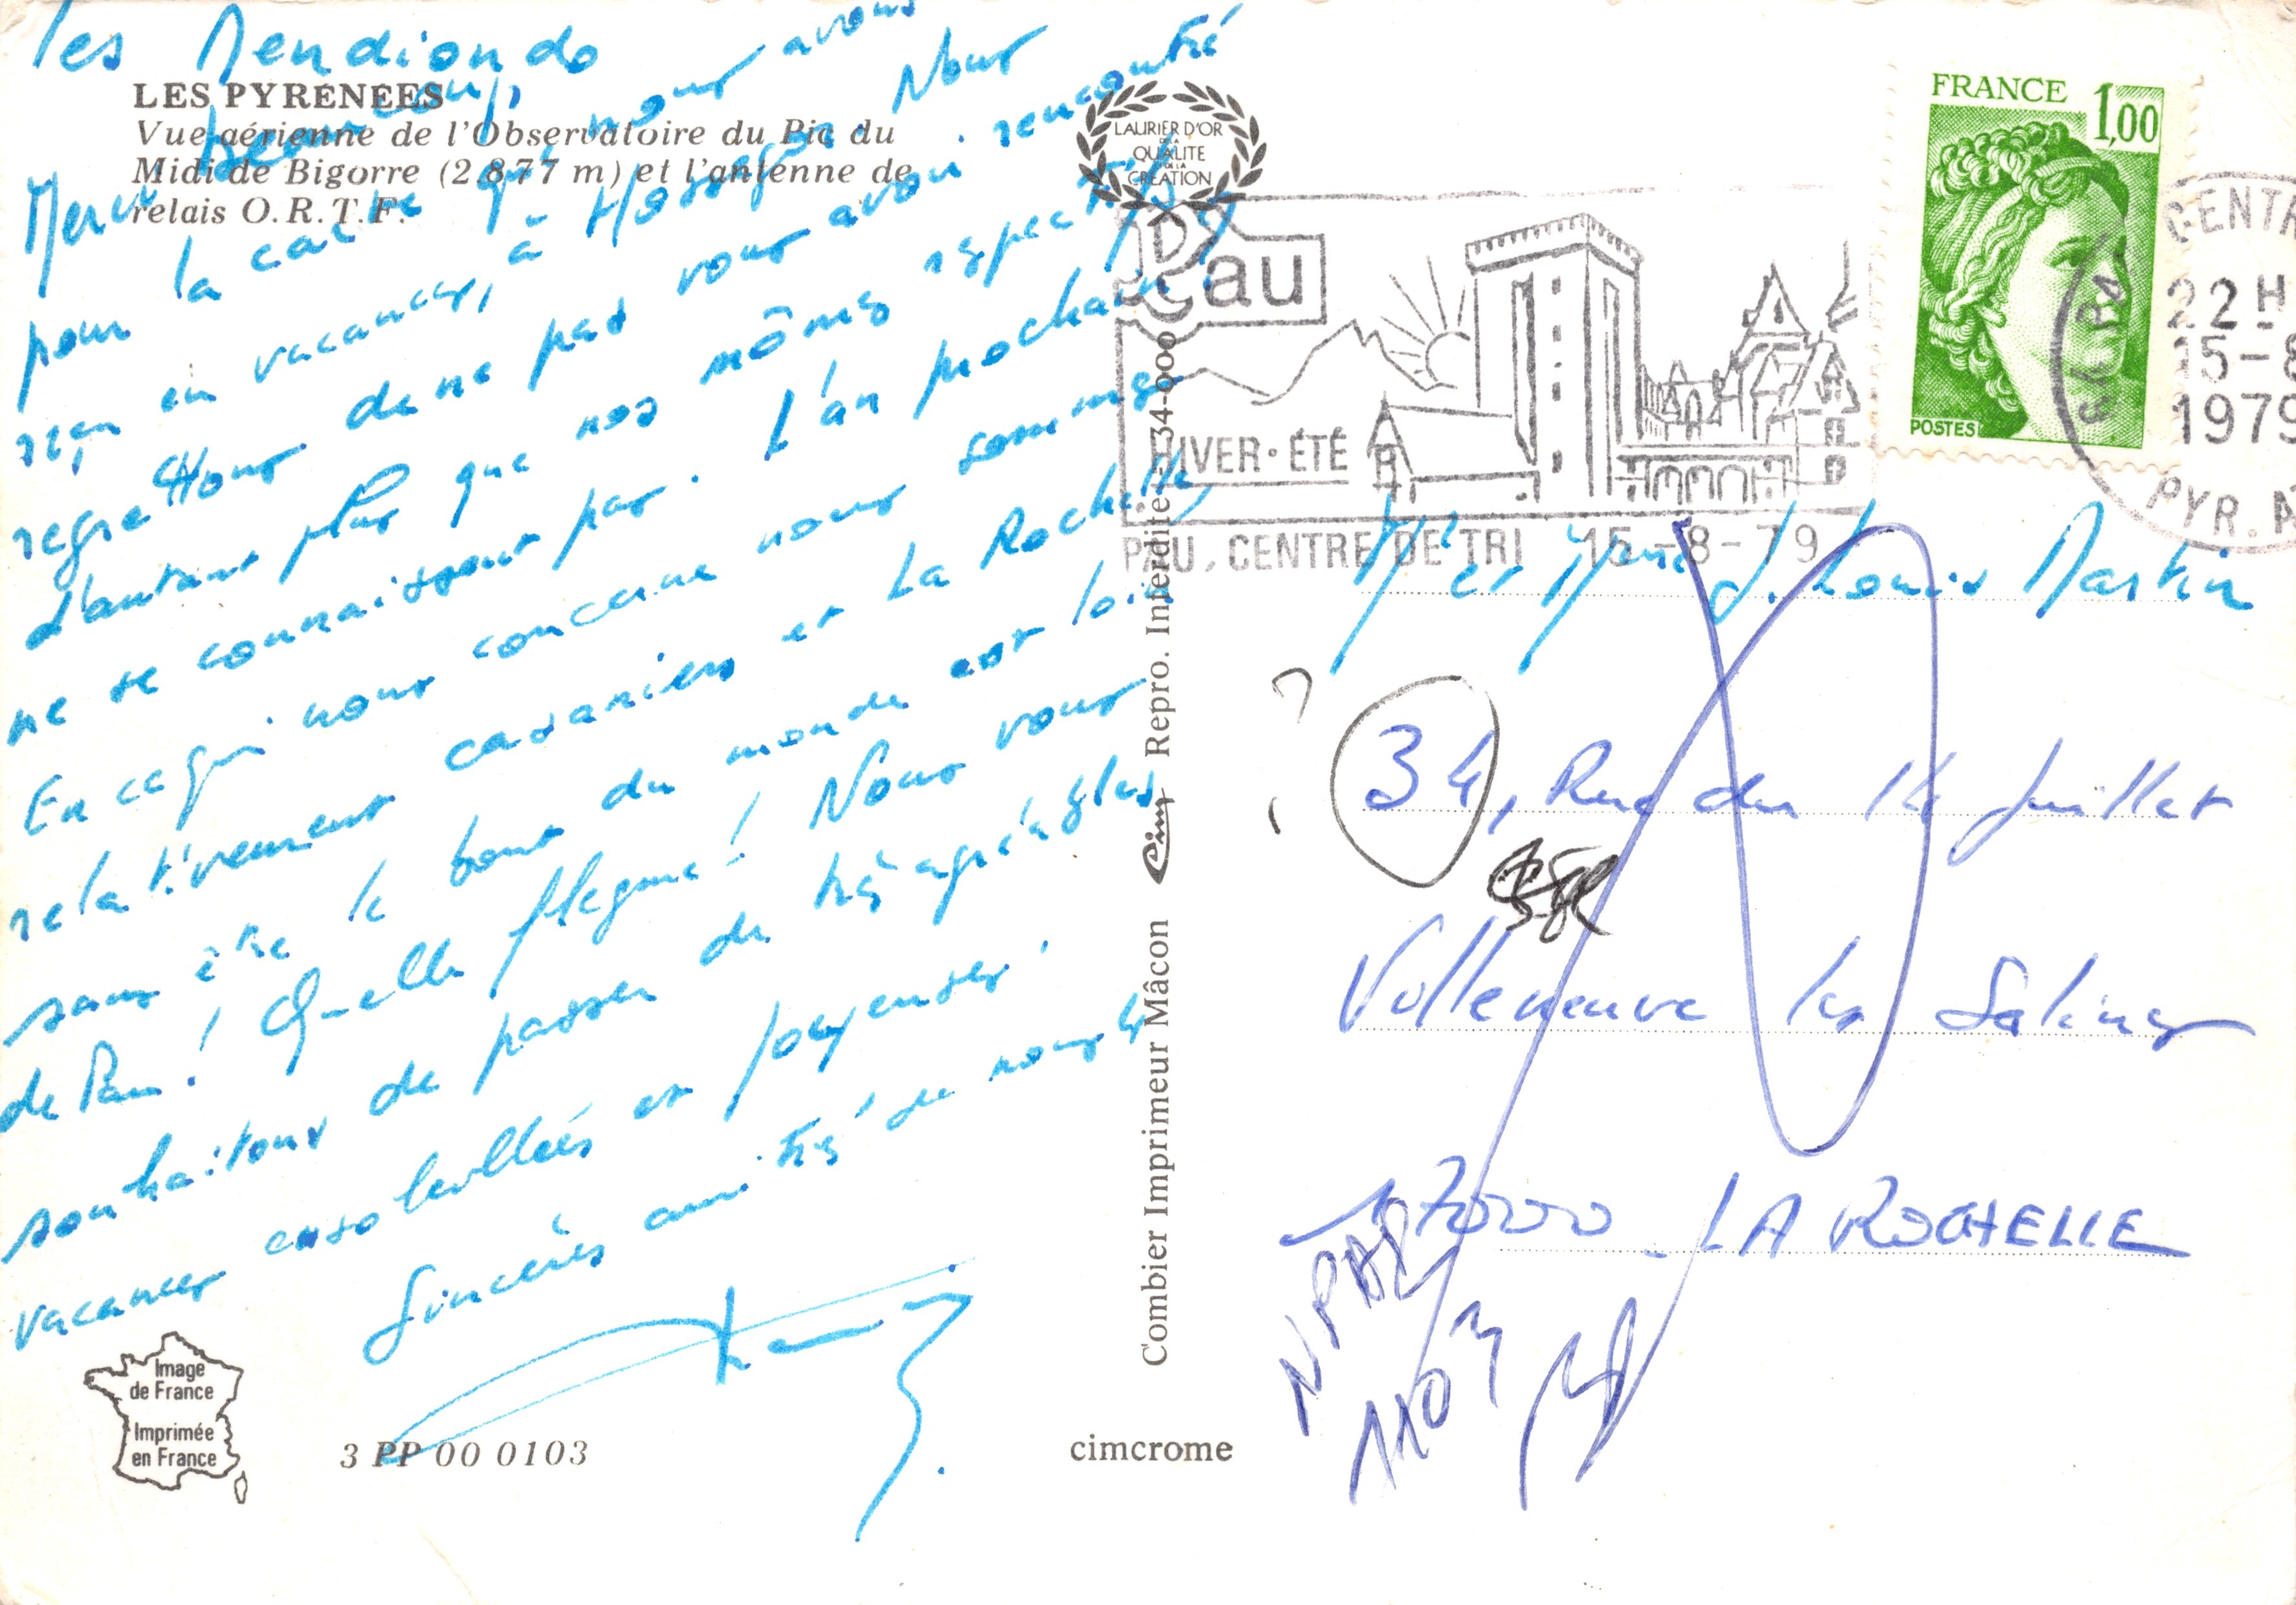 les Mendiondo
LES PYRÉNÉES
Vue aérienne de l'Observatoire du Pic du
Midi de Bigorre (2.877 m) et l'antenne de
relais O.R.T.F.
Merci beaucoup,
pour la carte que nous avons
reçu en vacances, à Hossegor. Nous
regrettons de ne pas vous avoir rencontré
d'autant plus que nos mômes respectifs
ne se connaissent pas. L'an prochain ?
En ce qui nous concerne nous sommes
relativement casaniers et La Rochelle
sans être le bout du monde est loin
de Pau ! Quelle flegme ! Nous vous
souhaitons de passer de très agréables
vacances ensoleillées et joyeuses.
Sincères amitiés de nous 4
Image
de France
Imprimée
en France
3 PP 00 0103
Combier Imprimeur Mâcon Cim Repro. Interdite - 34-000
cimcrome
LAURIER D'OR
DE LA
QUALITE
ET DE LA
CREATION
Pau
HIVER · ÉTÉ
PAU, CENTRE DE TRI 15-8-79
FRANCE 1,00
POSTES
CENTR
22H
15-8
1979
PYR. A
Mr et Mme J. Louis Martin
?
34, Rue du 14 Juillet
Villeneuve les Salines
17000 LA ROCHELLE
NPAI